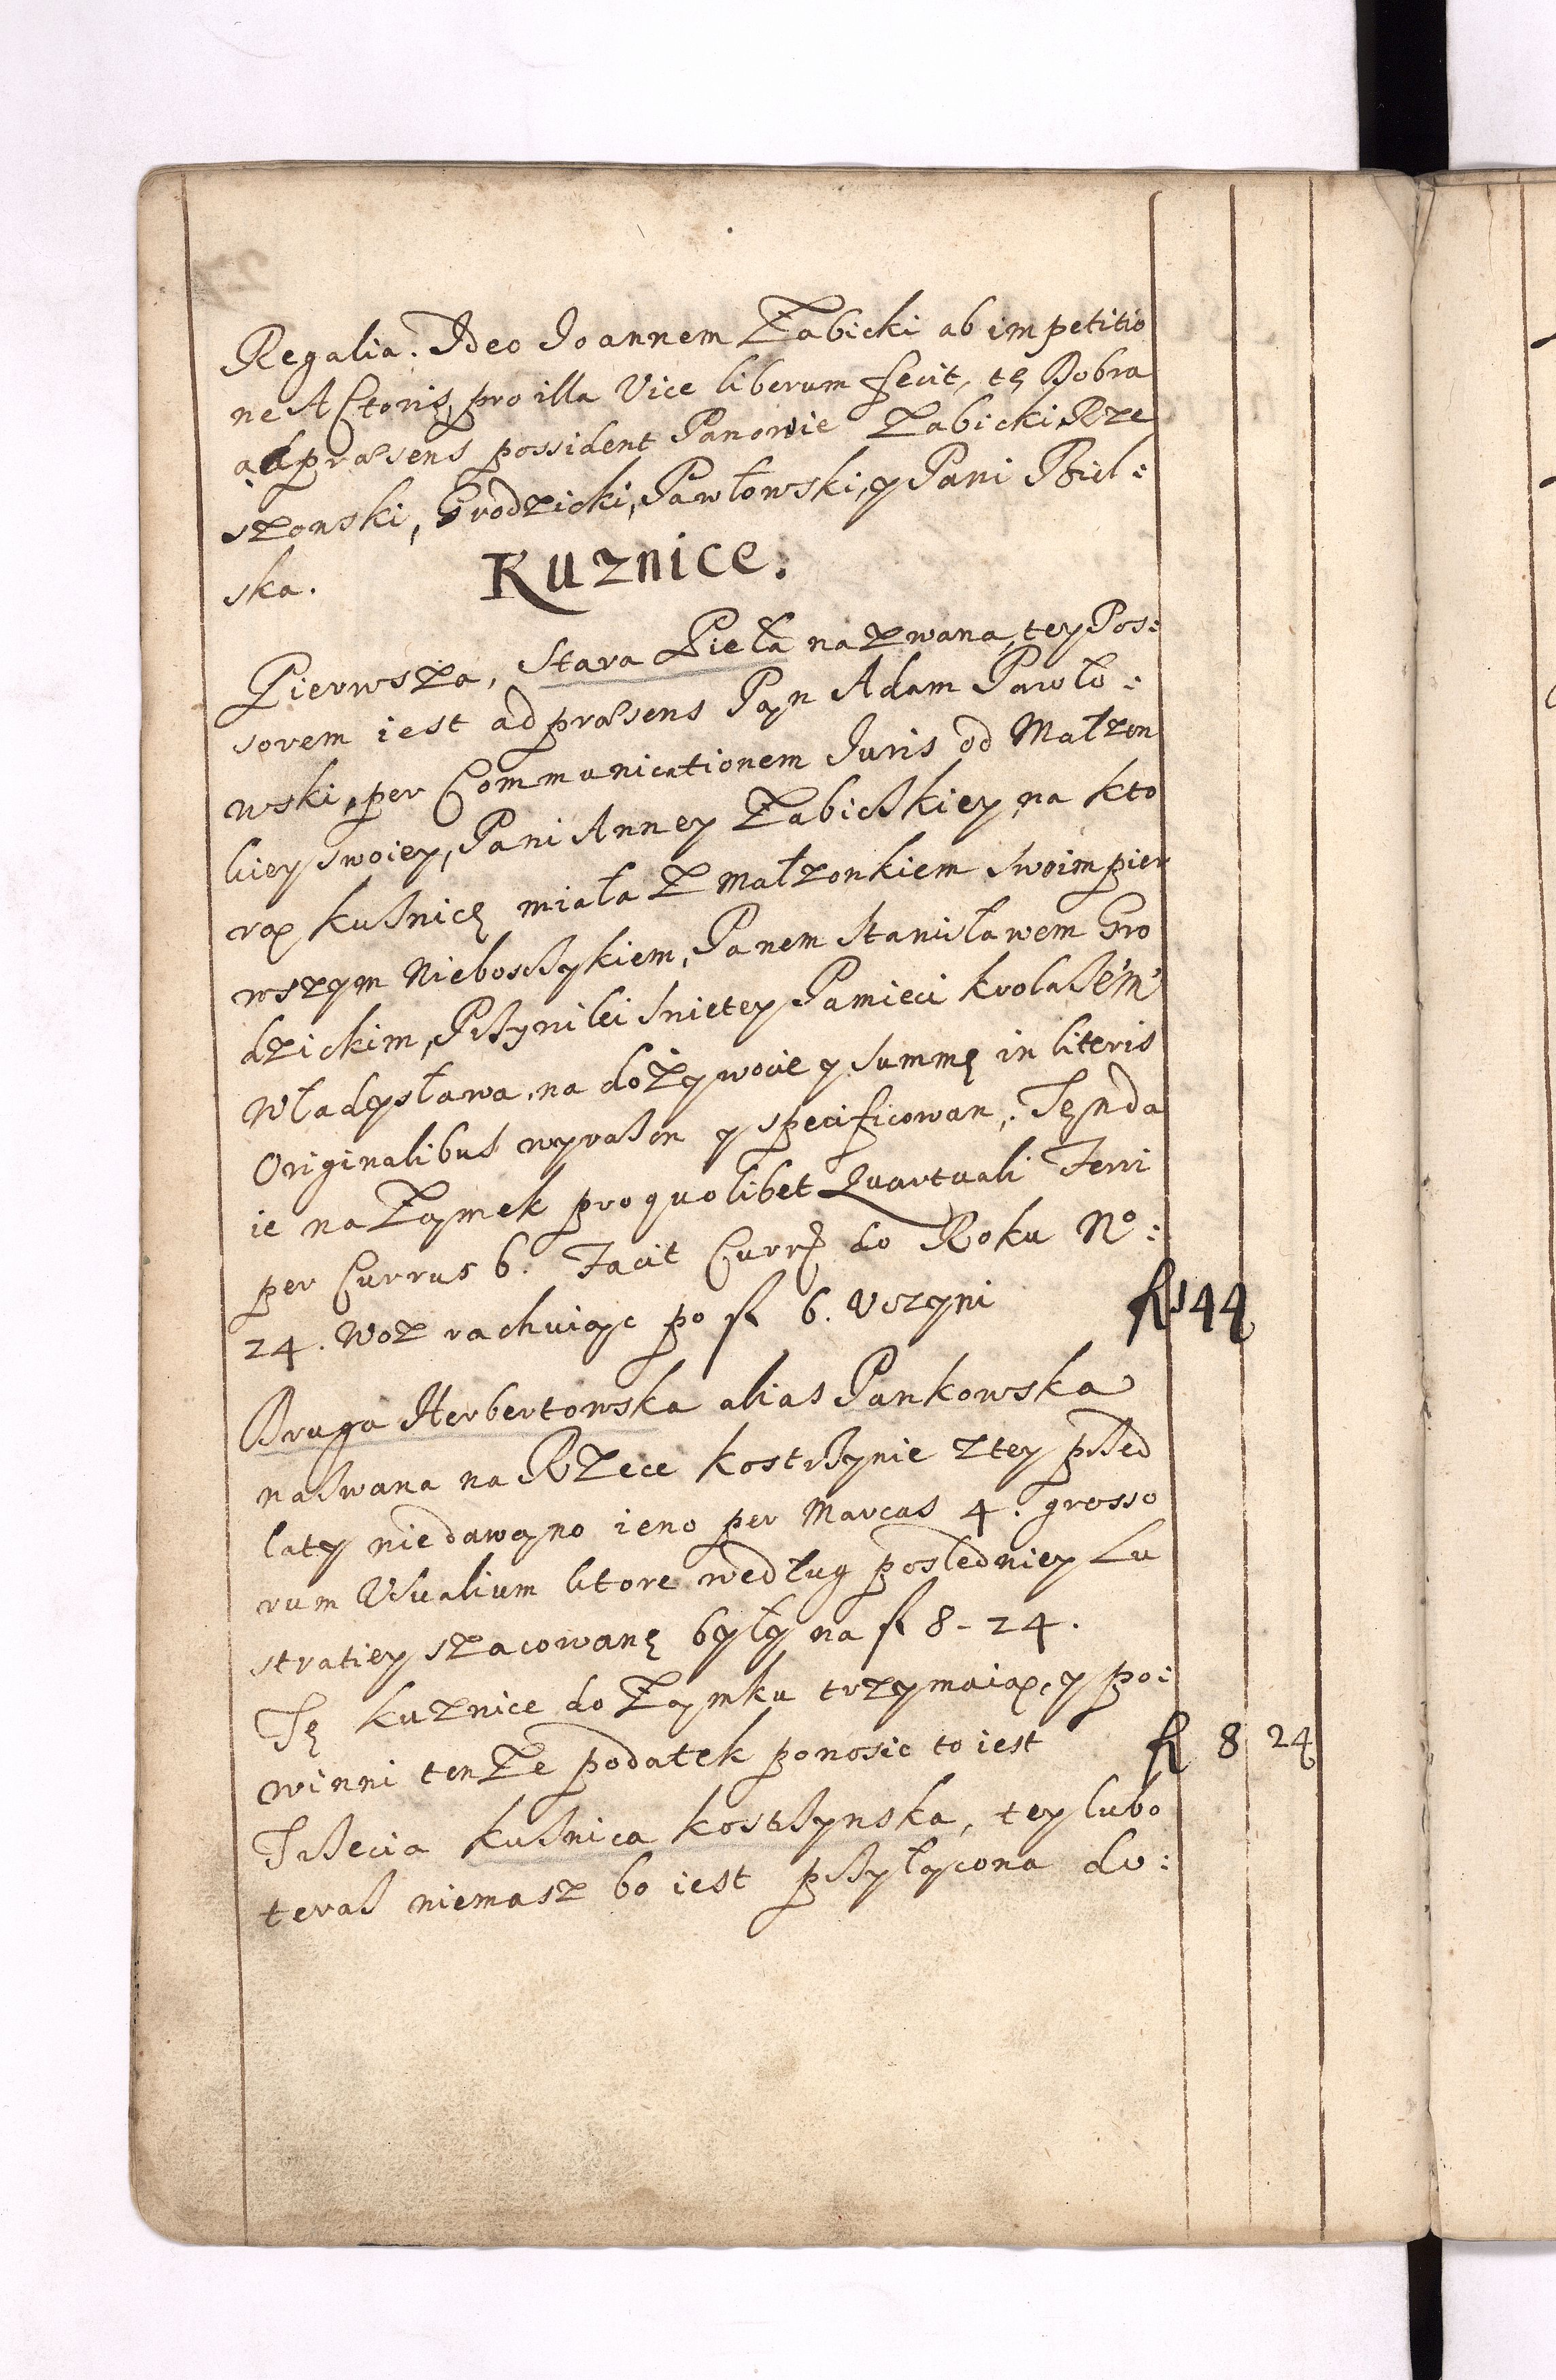 Regalia. Ideo Joannem Zabicki ab impetitio
ne Actoris, pro illa Vice liberum fecit, tę Dobra
ad præsens possident Panowie Zabicki, Rze
szonski, Grodzicki, Pawłowski, y Pani Biel:
ska.
Kuznice:
Pierwsza, Stara Pieła nazwana, tey Pos:
sorem iest ad præsens Pan Adam Pawło:
wski, per Communicationem Juris od Małzon
kiey swoiey, Pani Anney Zabickiey, na kto
rą kuśnicę miała z małzonkiem swoim pier
wszym Nieboszykiem, Panem Stanisławem Gro
dzickim, Przywilei swietey Pamieci krola Jem
Władysława, na dożywocie y summę in literis
Originalibus wyrażon y specificowan. Tęnda
ie na Zamek pro quolibet Quartuali Ferri
per Currus 6. Facit Curr do Roku No:
24. Woz rachuiąc po fl 6. Uczyni
fl 144
Druga Herbertowska alias Pankowska
naswana na Rzece kostrzynie z tey przed
laty niedawano ieno per Marcas 4. grosso
rum Usualium litore według posledniey Lu
stratiey szacowanę były na fl 8-24.
Tę kuznice do Zamku trzymaią, y po:
winni tenże podatek ponosic to iest
fl 8 24
Trzecia kuśnica kostrzynska, tey lubo
teraz niemasz bo iest przyłącona do: